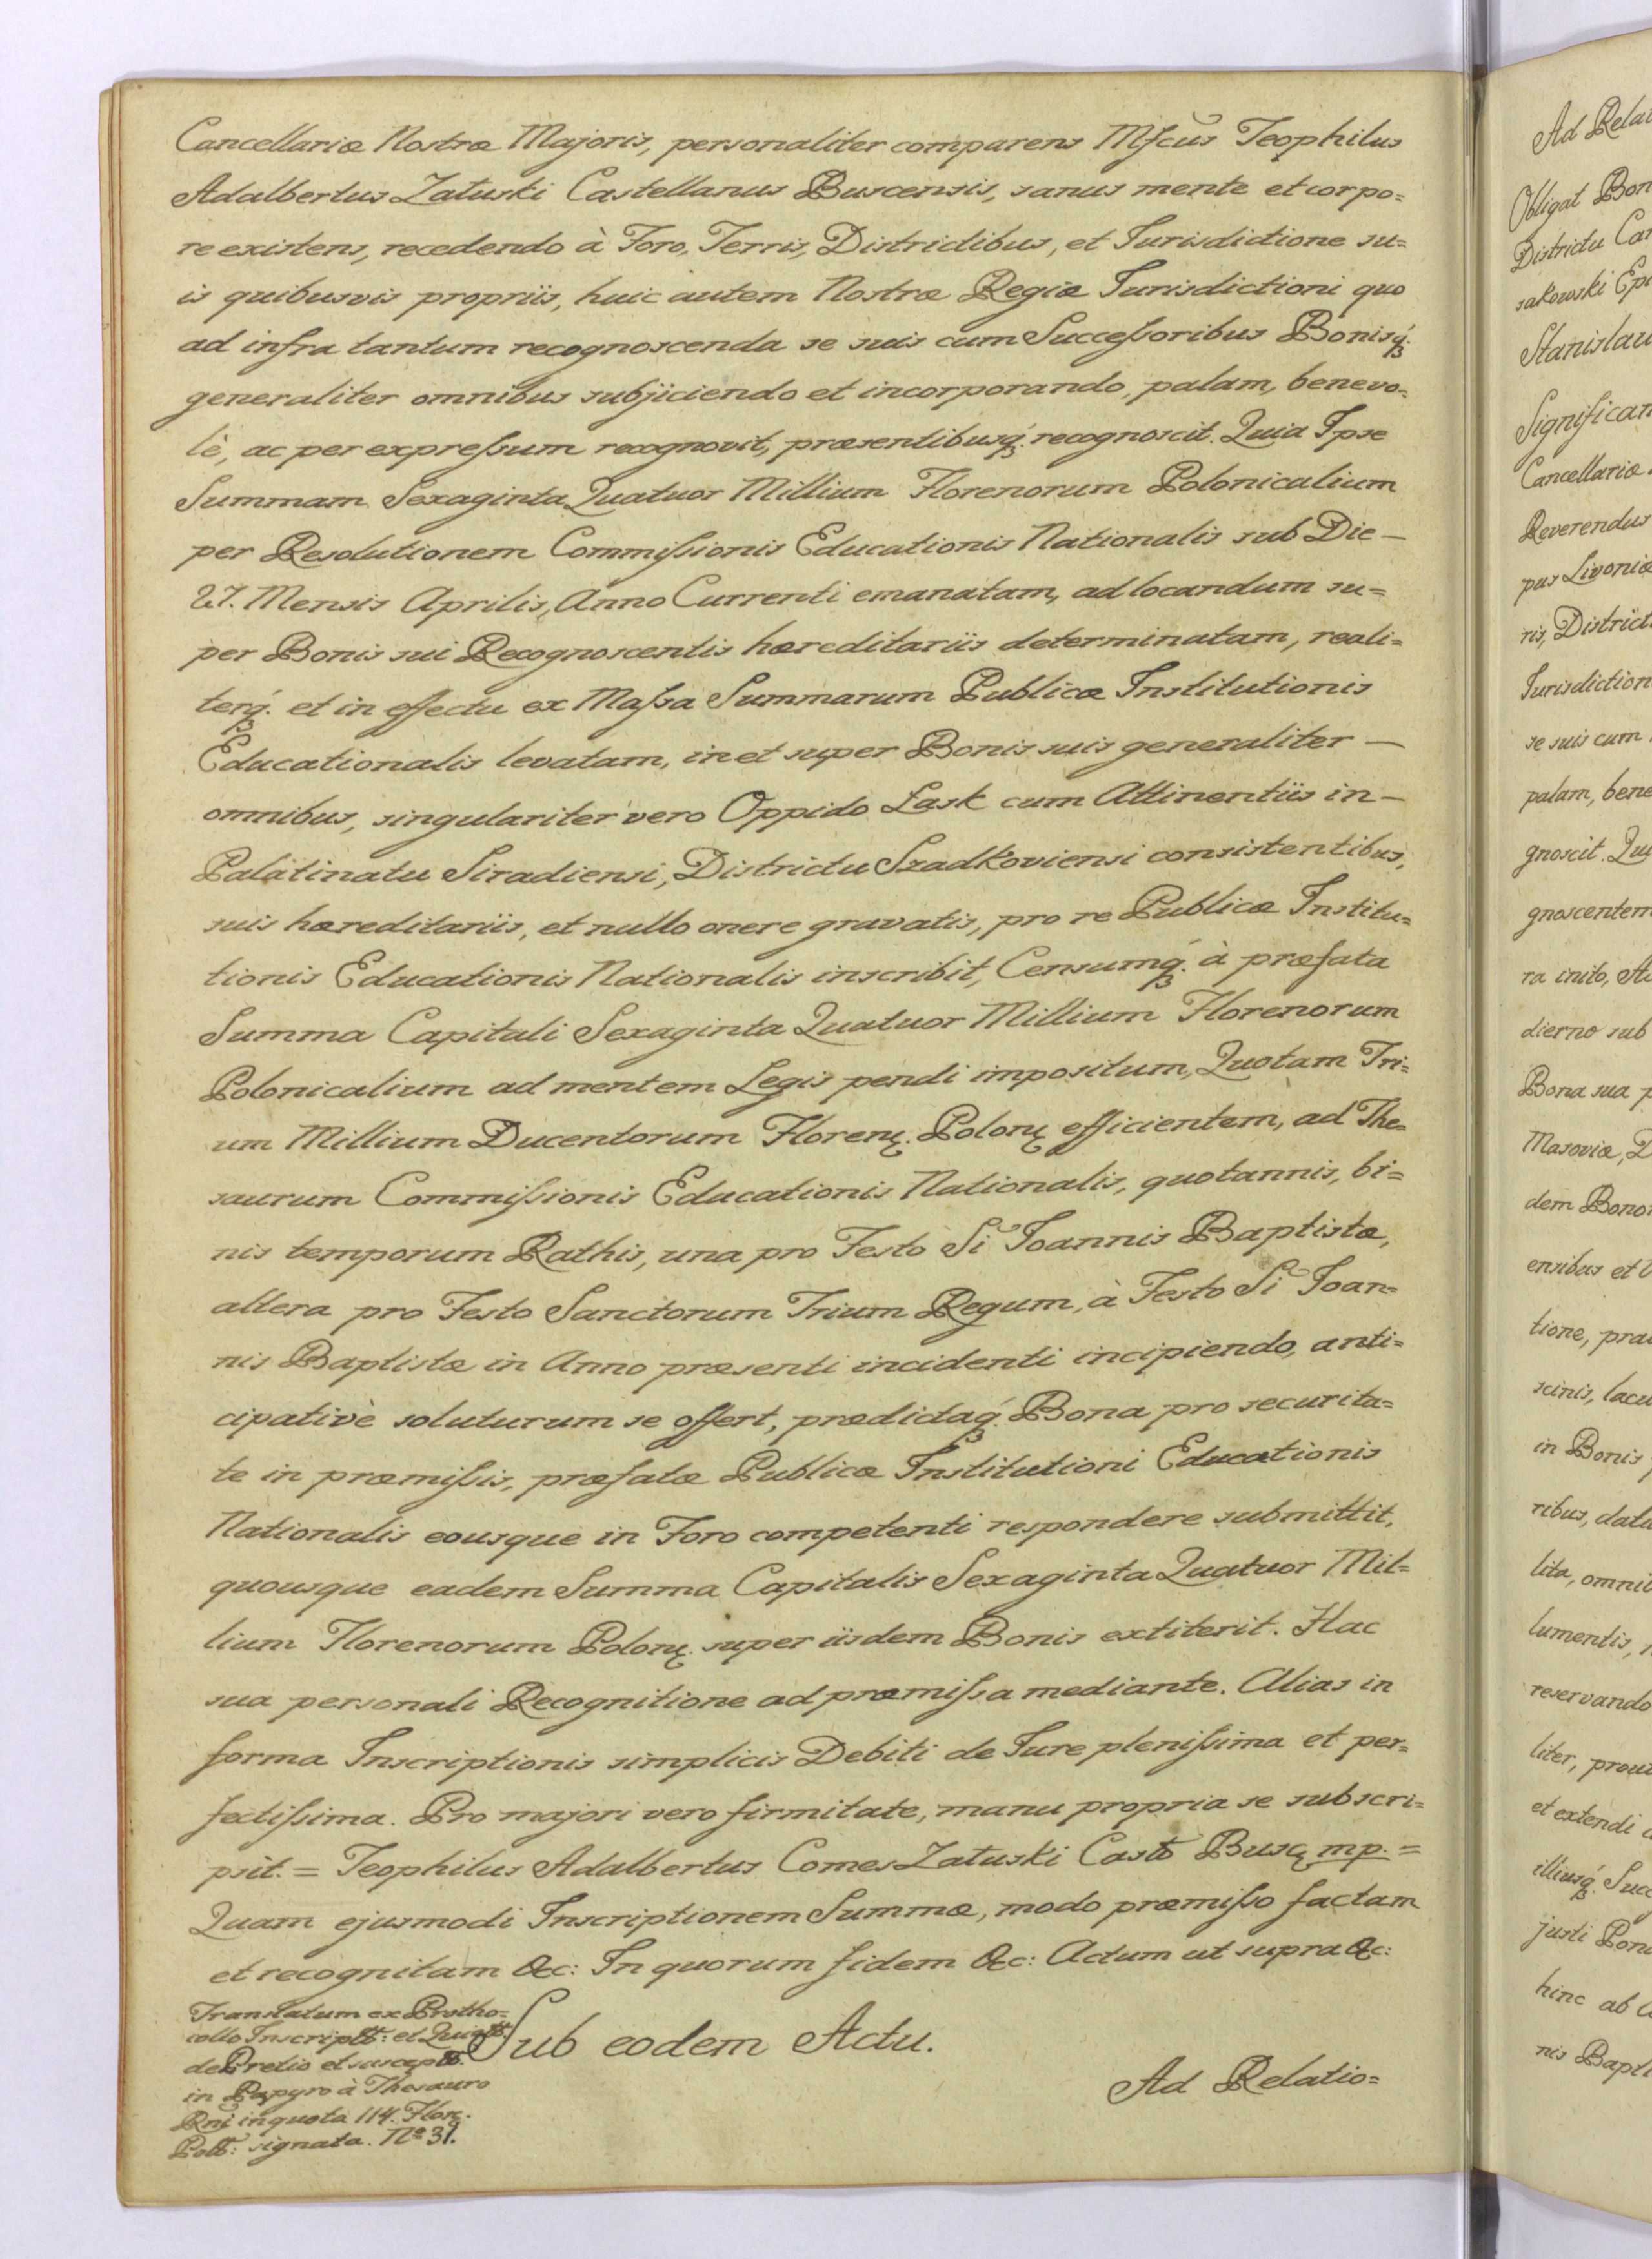 Cancellariæ Nostræ Majoris, personaliter comparens Mfcus Teophilus
Adalbertus Załuski Castellanus Buscensis, sanus mente et corpo=
re existens, recedendo à Foro, Terris, Districtibus, et Jurisdictione su=
is quibusvis propriis, huic autem Nostræ Regiæ Jurisdictioni quo
ad infra tantum recognoscenda se suis cum Successoribus Bonisq́ꝫ
generaliter omnibus subjiciendo et incorporando, palam, benevo=
lè, ac per expressum recognovit, præsentibusq́ꝫ recognoscit. Quia Ipse
Summam Sexaginta Quatuor Millium Florenorum Polonicalium
per Resolutionem Commissionis Educationis Nationalis sub Die –
27. Mensis Aprilis, Anno Currenti emanatam, ad locandum su=
per Bonis sui Recognoscentis hæreditariis determinatam, reali=
terq́ꝫ. et in effectu ex Massa Summarum Publicæ Institutionis
Educationalis levatam, in et super Bonis suis generaliter –
omnibus, singulariter vero Oppido Łask cum Attinentiis in –
Palatinatu Siradiensi, Districtu Szadkoviensi consistentibus,
suis hæreditariis, et nullo onere gravatis, pro re Publicæ Institu=
tionis Educationis Nationalis inscribit, Censumq́ꝫ. à præfata
Summa Capitali Sexaginta Quatuor Millium Florenorum
Polonicalium ad mentem Legis pendi impositum, Quotam Tri=
um Millium Ducentorum Florenꝝ. Polonꝝ efficientem, ad The=
saurum Commissionis Educationis Nationalis, quotannis, bi=
nis temporum Rathis, una pro Festo Si Joannis Baptistæ,
altera pro Festo Sanctorum Trium Regum, à Festo Si Joan=
nis Baptistæ in Anno præsenti incidenti incipiendo, anti=
cipativè soluturum se offert, prædictaq́ꝫ. Bona pro securita=
te in præmissis, præfatæ Publicæ Institutioni Educationis
Nationalis eousque in Foro competenti respondere submittit,
quousque eadem Summa Capitalis Sexaginta Quatuor Mil=
lium Florenorum Polonꝝ. super iisdem Bonis extiterit. Hac
sua personali Recognitione ad præmissa mediante. Alias in
forma Inscriptionis simplicis Debiti de Jure plenissima et per=
fectissima. Pro majori vero firmitate, manu propria se subscri=
psit. = Teophilus Adalbertus Comes Załuski Castł Buscꝝ mp. =
Quam ejusmodi Inscriptionem Summæ, modo præmisso factam
et recognitam &c: In quorum fidem &c: Actum ut supra &c:
Translatum ex Protho=
collo Inscriptł: et Quiettł.
de Pretio et susceptł.
in Papyro à Thesauro
Rni in quota 114. Florꝝ.
Poltł: signata. Nº 31.
Sub eodem Actu.
Ad Relatio=
Ad Relat
Obligat Bon
Districtu Ca
sakowski Epi
Stanislau
Significam
Cancellariæ
Reverendus
pus Livoniæ
ris, District
Jurisdiction
se suis cum
palam, bene
gnoscit. Qui
gnoscentem
ra inito, A
dierno sub
Bona sua p
Masoviæ, D
dem Bono
ensibus et
tione, pra
scinis, lacu
in Bonis
ribus, data
lita, omni
lumentis,
reservando
liter, prout
et extendi
illiusq́ꝫ. Suc
justi Pon
hinc ab
nis Bapt